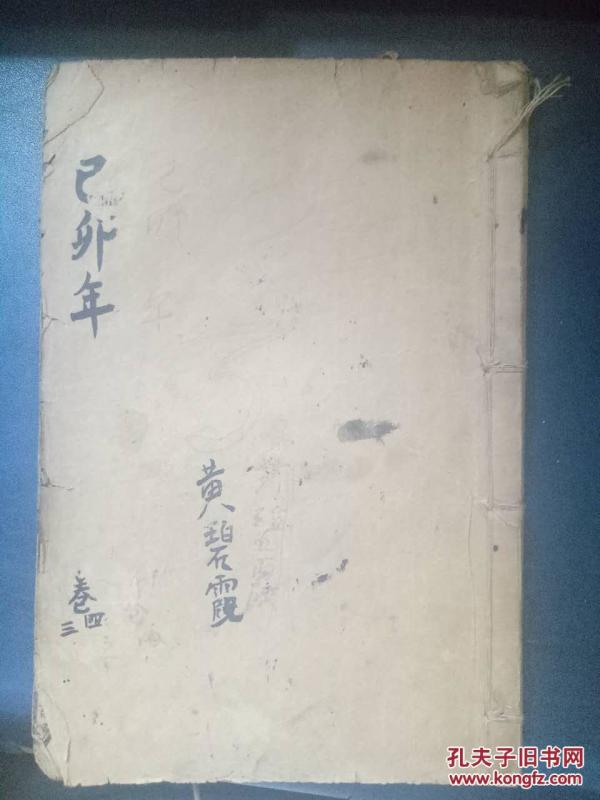 己卯年
黄碧霞
卷三四
孔夫子旧书网
www.kongfz.com